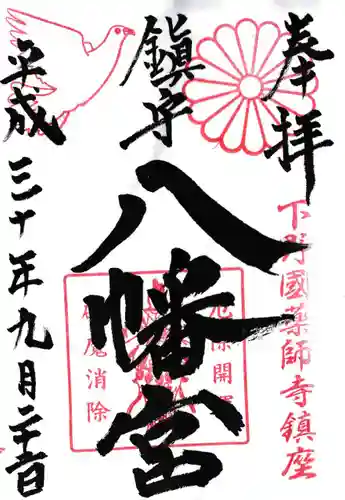 奉拝
下野國薬師寺鎮座
鎮守
八幡宮
厄除開運
破魔消除
平成三十年九月二十二日